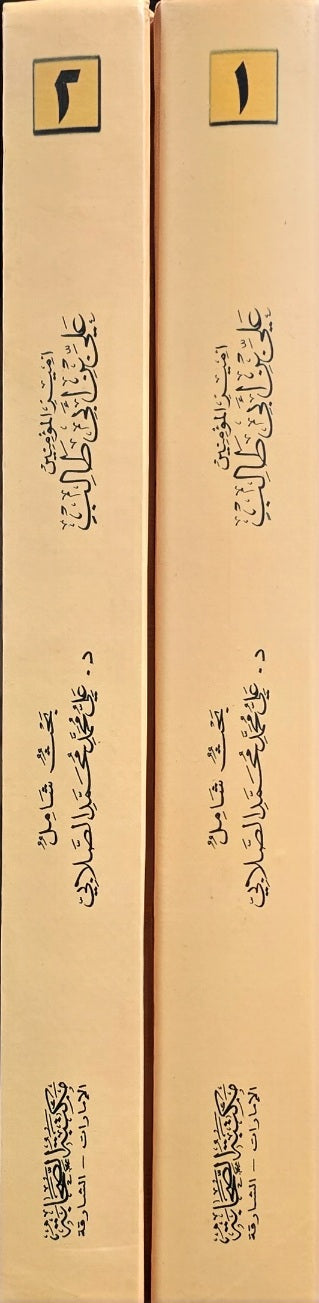 ١
أمير المؤمنين
علي بن أبي طالب
د. علي محمد محمد الصلابي
بحث شامل
مكتبة الصحابة
الإمارات - الشارقة
٢
أمير المؤمنين
علي بن أبي طالب
د. علي محمد محمد الصلابي
بحث شامل
مكتبة الصحابة
الإمارات - الشارقة